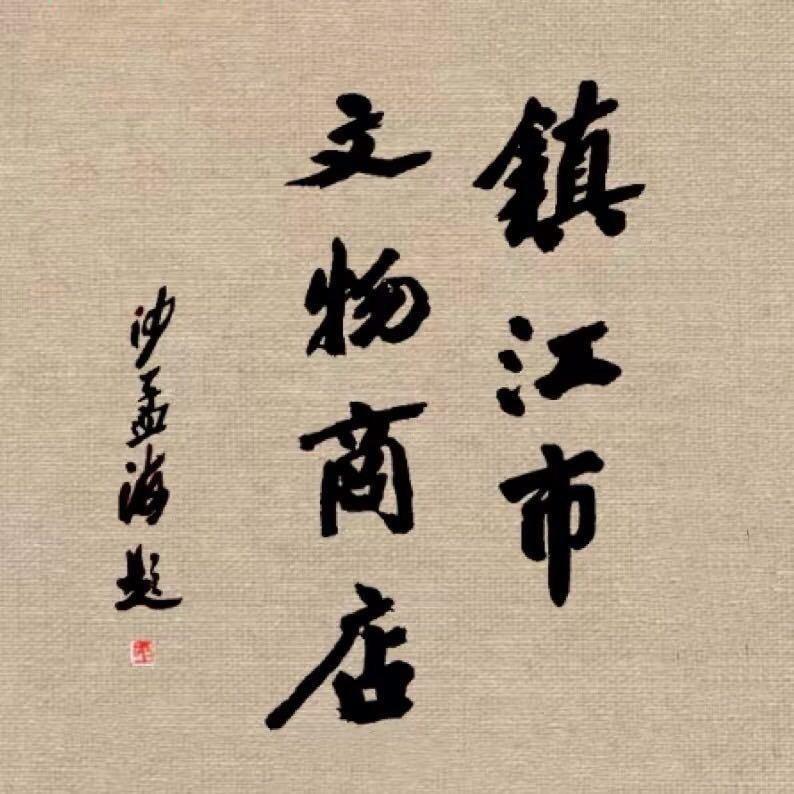 鎮江市
文物商店
沙孟海題